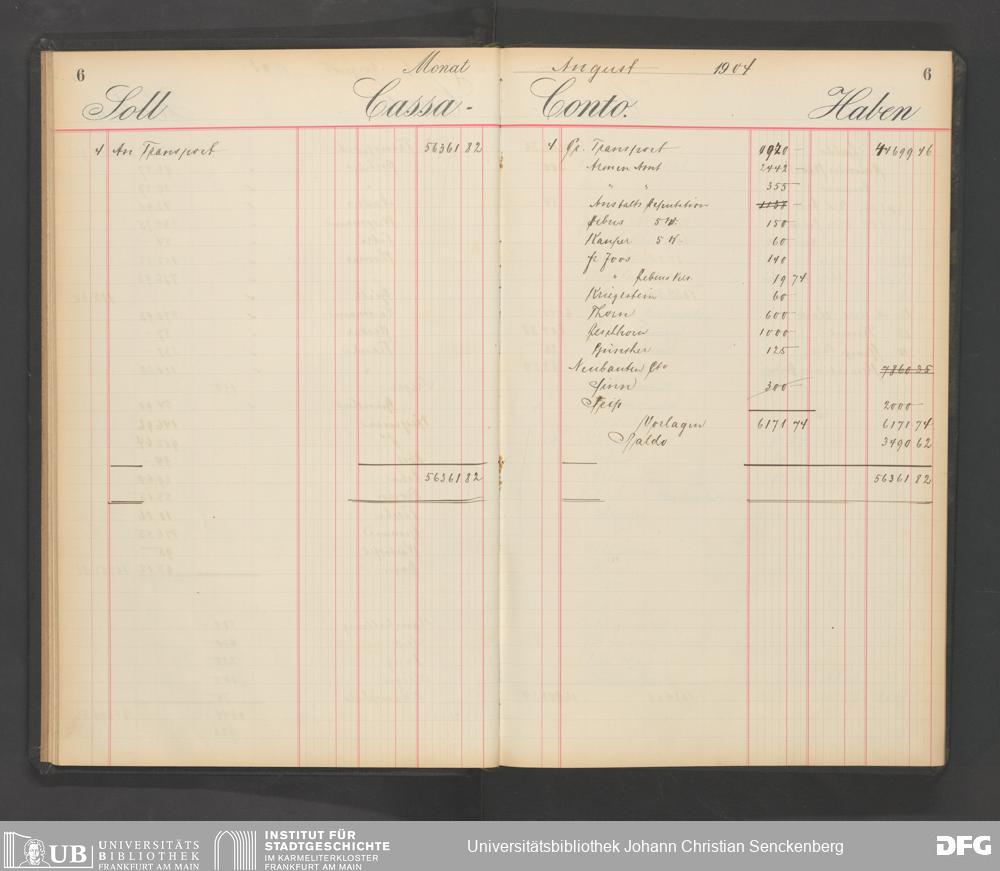 6 Monat August 1904 6
Soll Cassa- Conto. Haben
4 An Transport 56361 82
4 Pr. Transport 0920 — 44699 46
Armen Amt 2442 —
" " 355 —
Anstalts Deputation 1137
Debus 5 M. 150 —
Kanper 5 M. 60 —
fr Joos 140
" Debus 19 74
Kriegstein 60 —
Thorn 600 —
Jesselhorn 1000 —
Günther 125
Neubauten Cto 7860 35
Sinn 300 —
Seip 2000 —
Vorlagen 6171 74 6171 74
Saldo 3490 62
56361 82 56361 82
UB UNIVERSITÄTS
BIBLIOTHEK
FRANKFURT AM MAIN
INSTITUT FÜR
STADTGESCHICHTE
IM KARMELITERKLOSTER
FRANKFURT AM MAIN
Universitätsbibliothek Johann Christian Senckenberg
DFG